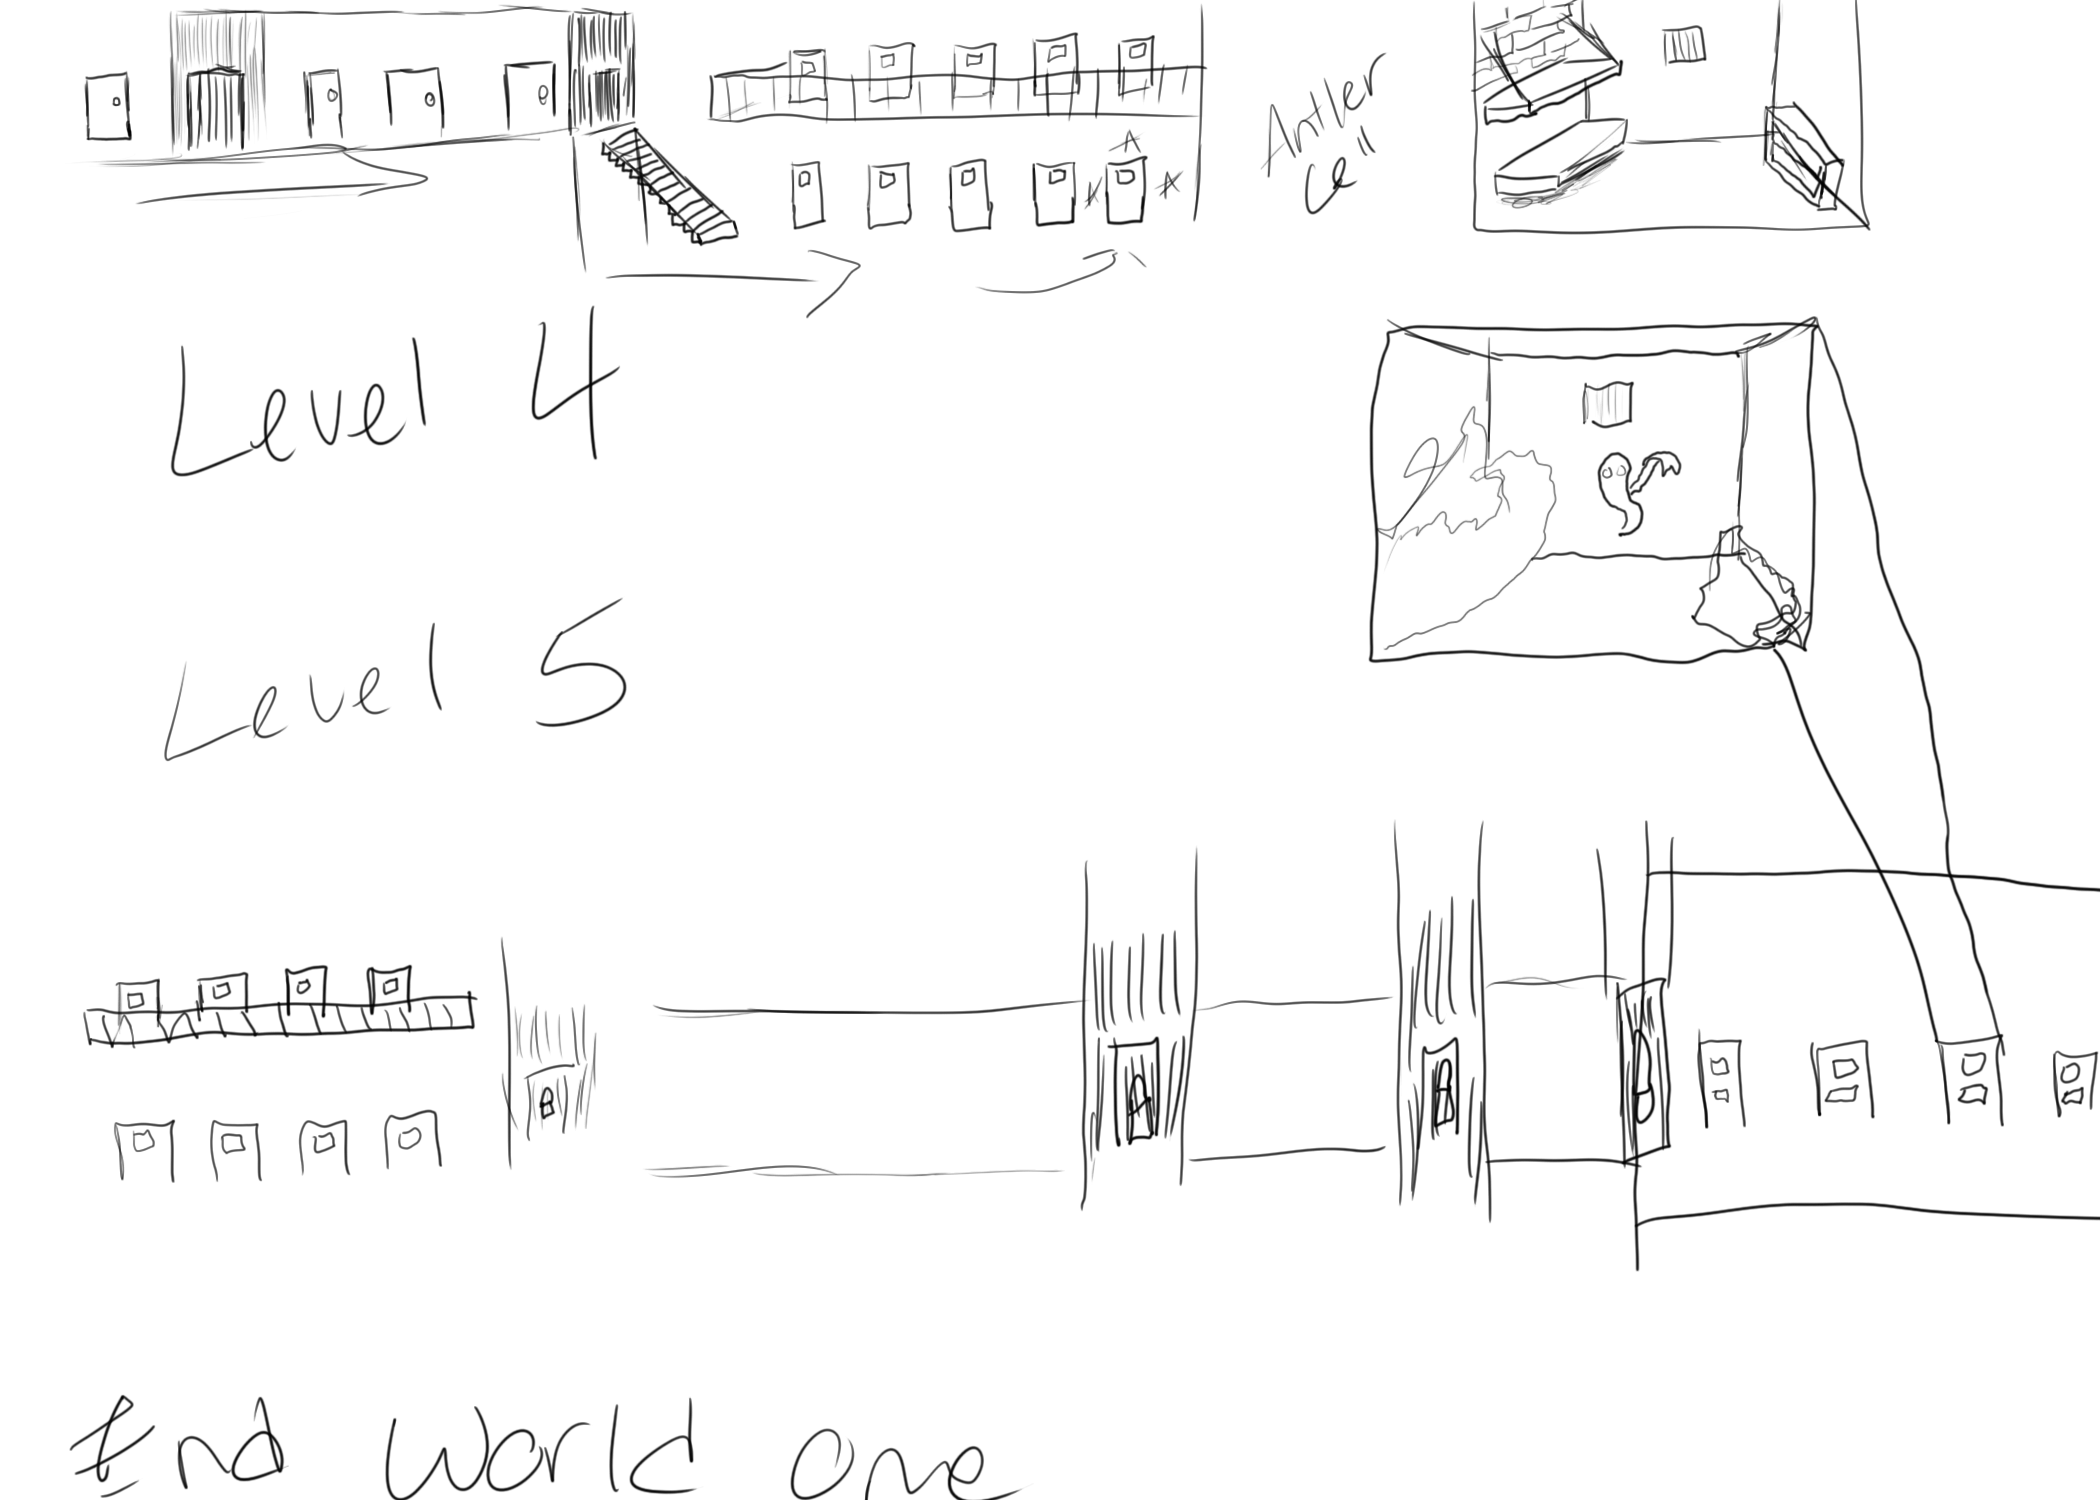 Antler
Cell
Level 4
Level 5
End World one